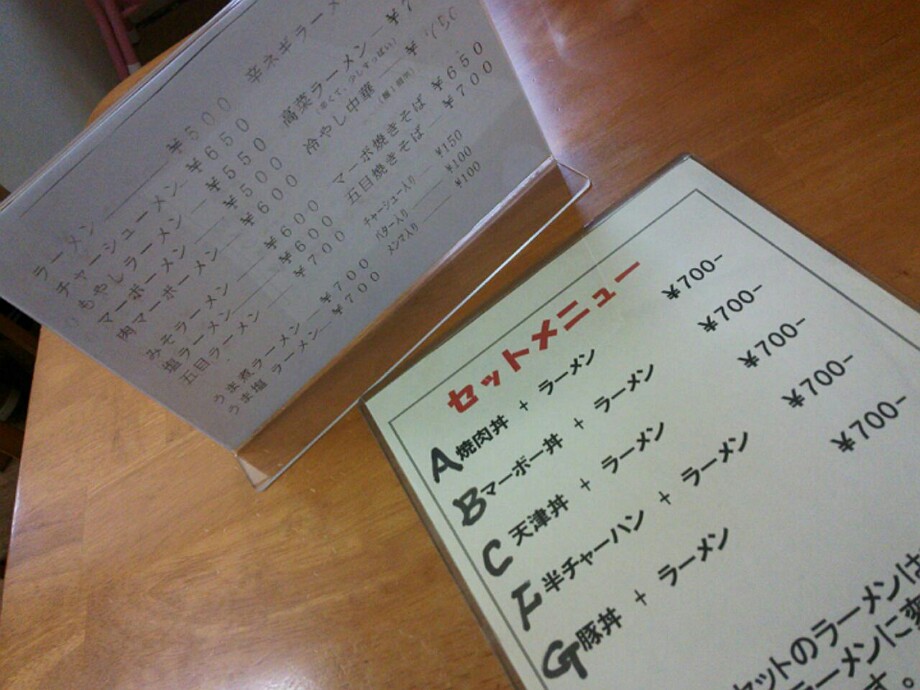 ラーメン ¥500
チャーシューメン ¥650
もやしラーメン ¥550
マーボーメン ¥500
肉マーボーメン ¥600
みそラーメン ¥600
塩ラーメン ¥600
五目ラーメン ¥700
うま煮ラーメン ¥700
うま塩ラーメン ¥700
辛ネギラーメ
高菜ラーメン ¥7
冷やし中華 ¥750
マーボ焼きそば ¥650
五目焼きそば ¥700
チャーシュー入り ¥150
バター入り ¥100
メンマ入り ¥100
セットメニュー
A 焼肉丼 + ラーメン 夫700-
B マーボー丼 + ラーメン 夫700-
C 天津丼 + ラーメン 夫700-
F 半チャーハン + ラーメン 夫700-
G 豚丼 + ラーメン 夫700-
セットのラーメンは
ラーメンに変
す。